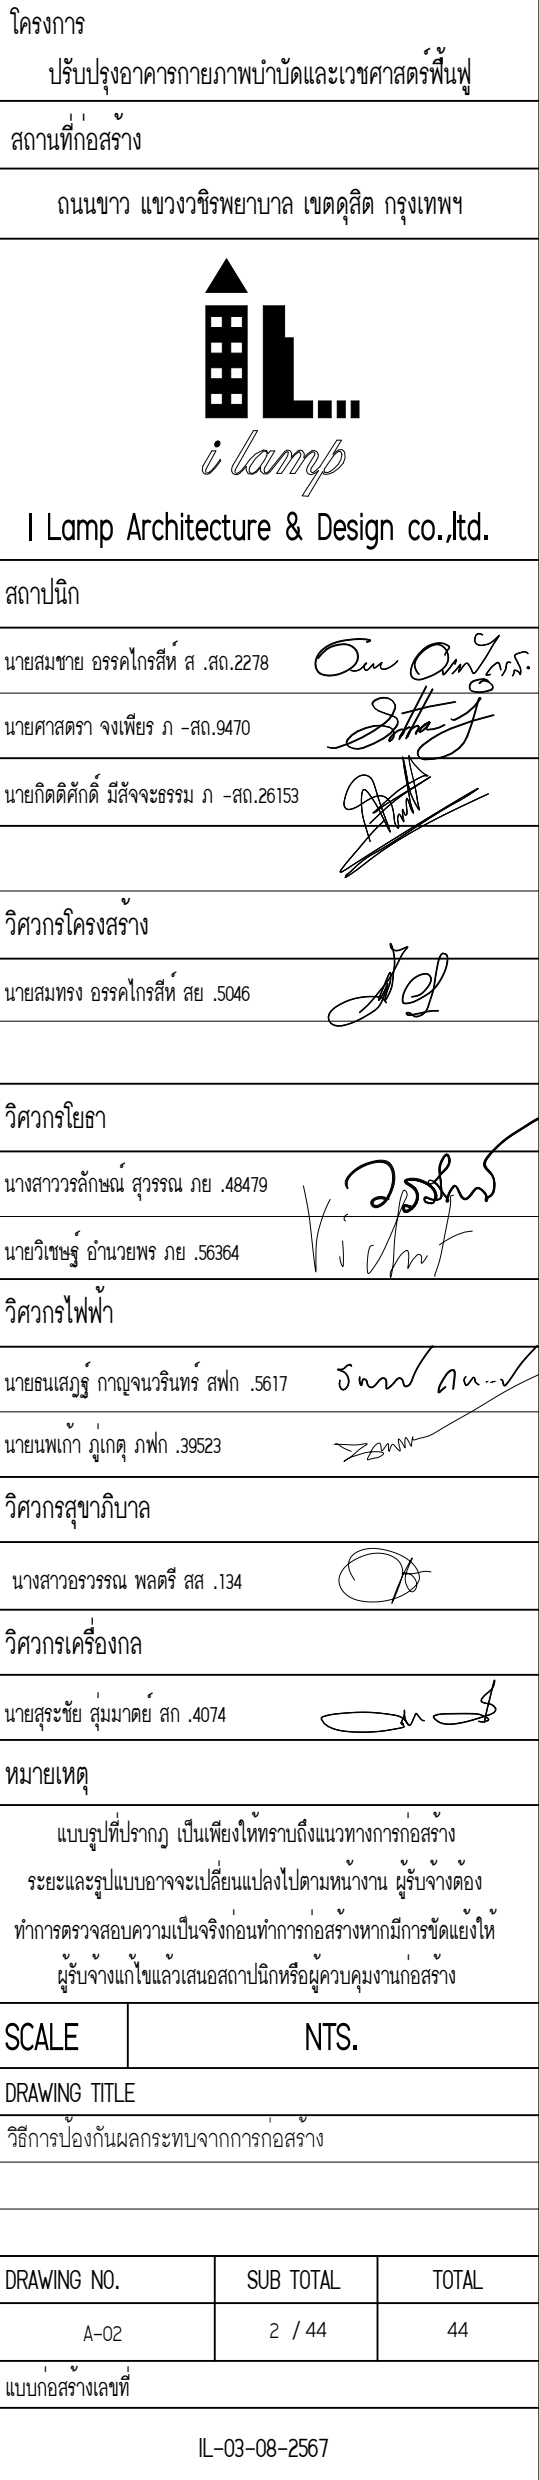 โครงการ
ปรับปรุงอาคารกายภาพบำบัดและเวชศาสตร์ฟื้นฟู
สถานที่ก่อสร้าง
ถนนขาว แขวงวชิรพยาบาล เขตดุสิต กรุงเทพฯ
i lamp
I Lamp Architecture & Design co.,ltd.
สถาปนิก
นายสมชาย อรรคไกรสีห์ ส .สถ.2278
นายศาสตรา จงเพียร ภ -สถ.9470
นายกิตติศักดิ์ มีสัจจะธรรม ภ -สถ.26153
วิศวกรโครงสร้าง
นายสมทรง อรรคไกรสีห์ สย .5046
วิศวกรโยธา
นางสาววรลักษณ์ สุวรรณ ภย .48479
นายวิเชษฐ์ อำนวยพร ภย .56364
วิศวกรไฟฟ้า
นายธนเสฏฐ์ กาญจนวรินทร์ สฟก .5617
นายนพเก้า ภู่เกตุ ภฟก .39523
วิศวกรสุขาภิบาล
นางสาวอรวรรณ พลตรี สส .134
วิศวกรเครื่องกล
นายสุระชัย สุ่มมาตย์ สก .4074
หมายเหตุ
แบบรูปที่ปรากฎ เป็นเพียงให้ทราบถึงแนวทางการก่อสร้าง
ระยะและรูปแบบอาจจะเปลี่ยนแปลงไปตามหน้างาน ผู้รับจ้างต้อง
ทำการตรวจสอบความเป็นจริงก่อนทำการก่อสร้างหากมีการขัดแย้งให้
ผู้รับจ้างแก้ไขแล้วเสนอสถาปนิกหรือผู้ควบคุมงานก่อสร้าง
SCALE NTS.
DRAWING TITLE
วิธีการป้องกันผลกระทบจากการก่อสร้าง
DRAWING NO. SUB TOTAL TOTAL
A-02 2 / 44 44
แบบก่อสร้างเลขที่
IL-03-08-2567